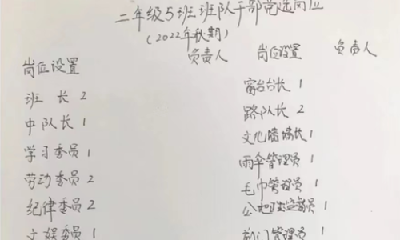 二年级5班班队干部竞选岗位
(2022年秋期)
岗位设置 负责人 岗位设置 负责人
班长 2 窗台长 1
中队长 1 路队长 2
学习委员 1 文化墙墙长 1
劳动委员 2 雨伞管理员 1
纪律委员 2 毛巾管理员 1
文娱委员 1 管理员